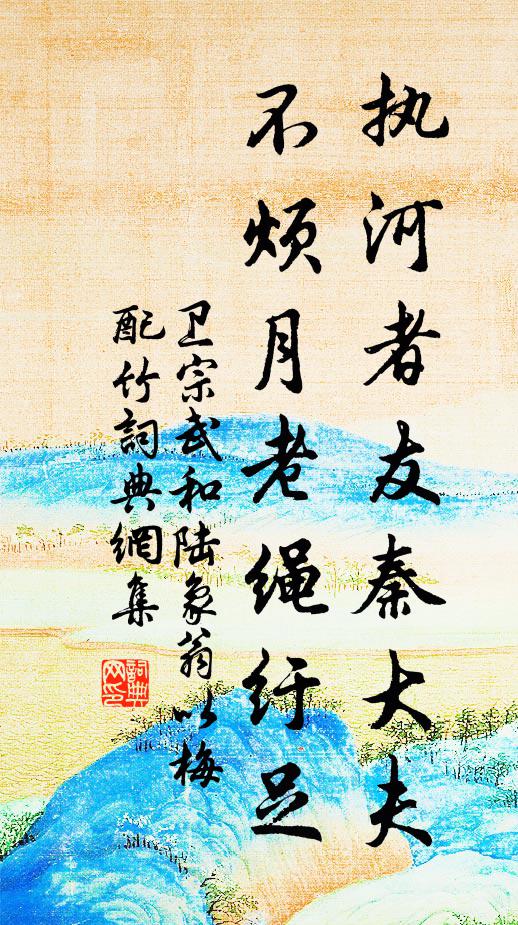 执河者友秦大夫
不烦月老绳纡足
卫宗武和陆象翁以梅
配竹詞典網集
詞典网印